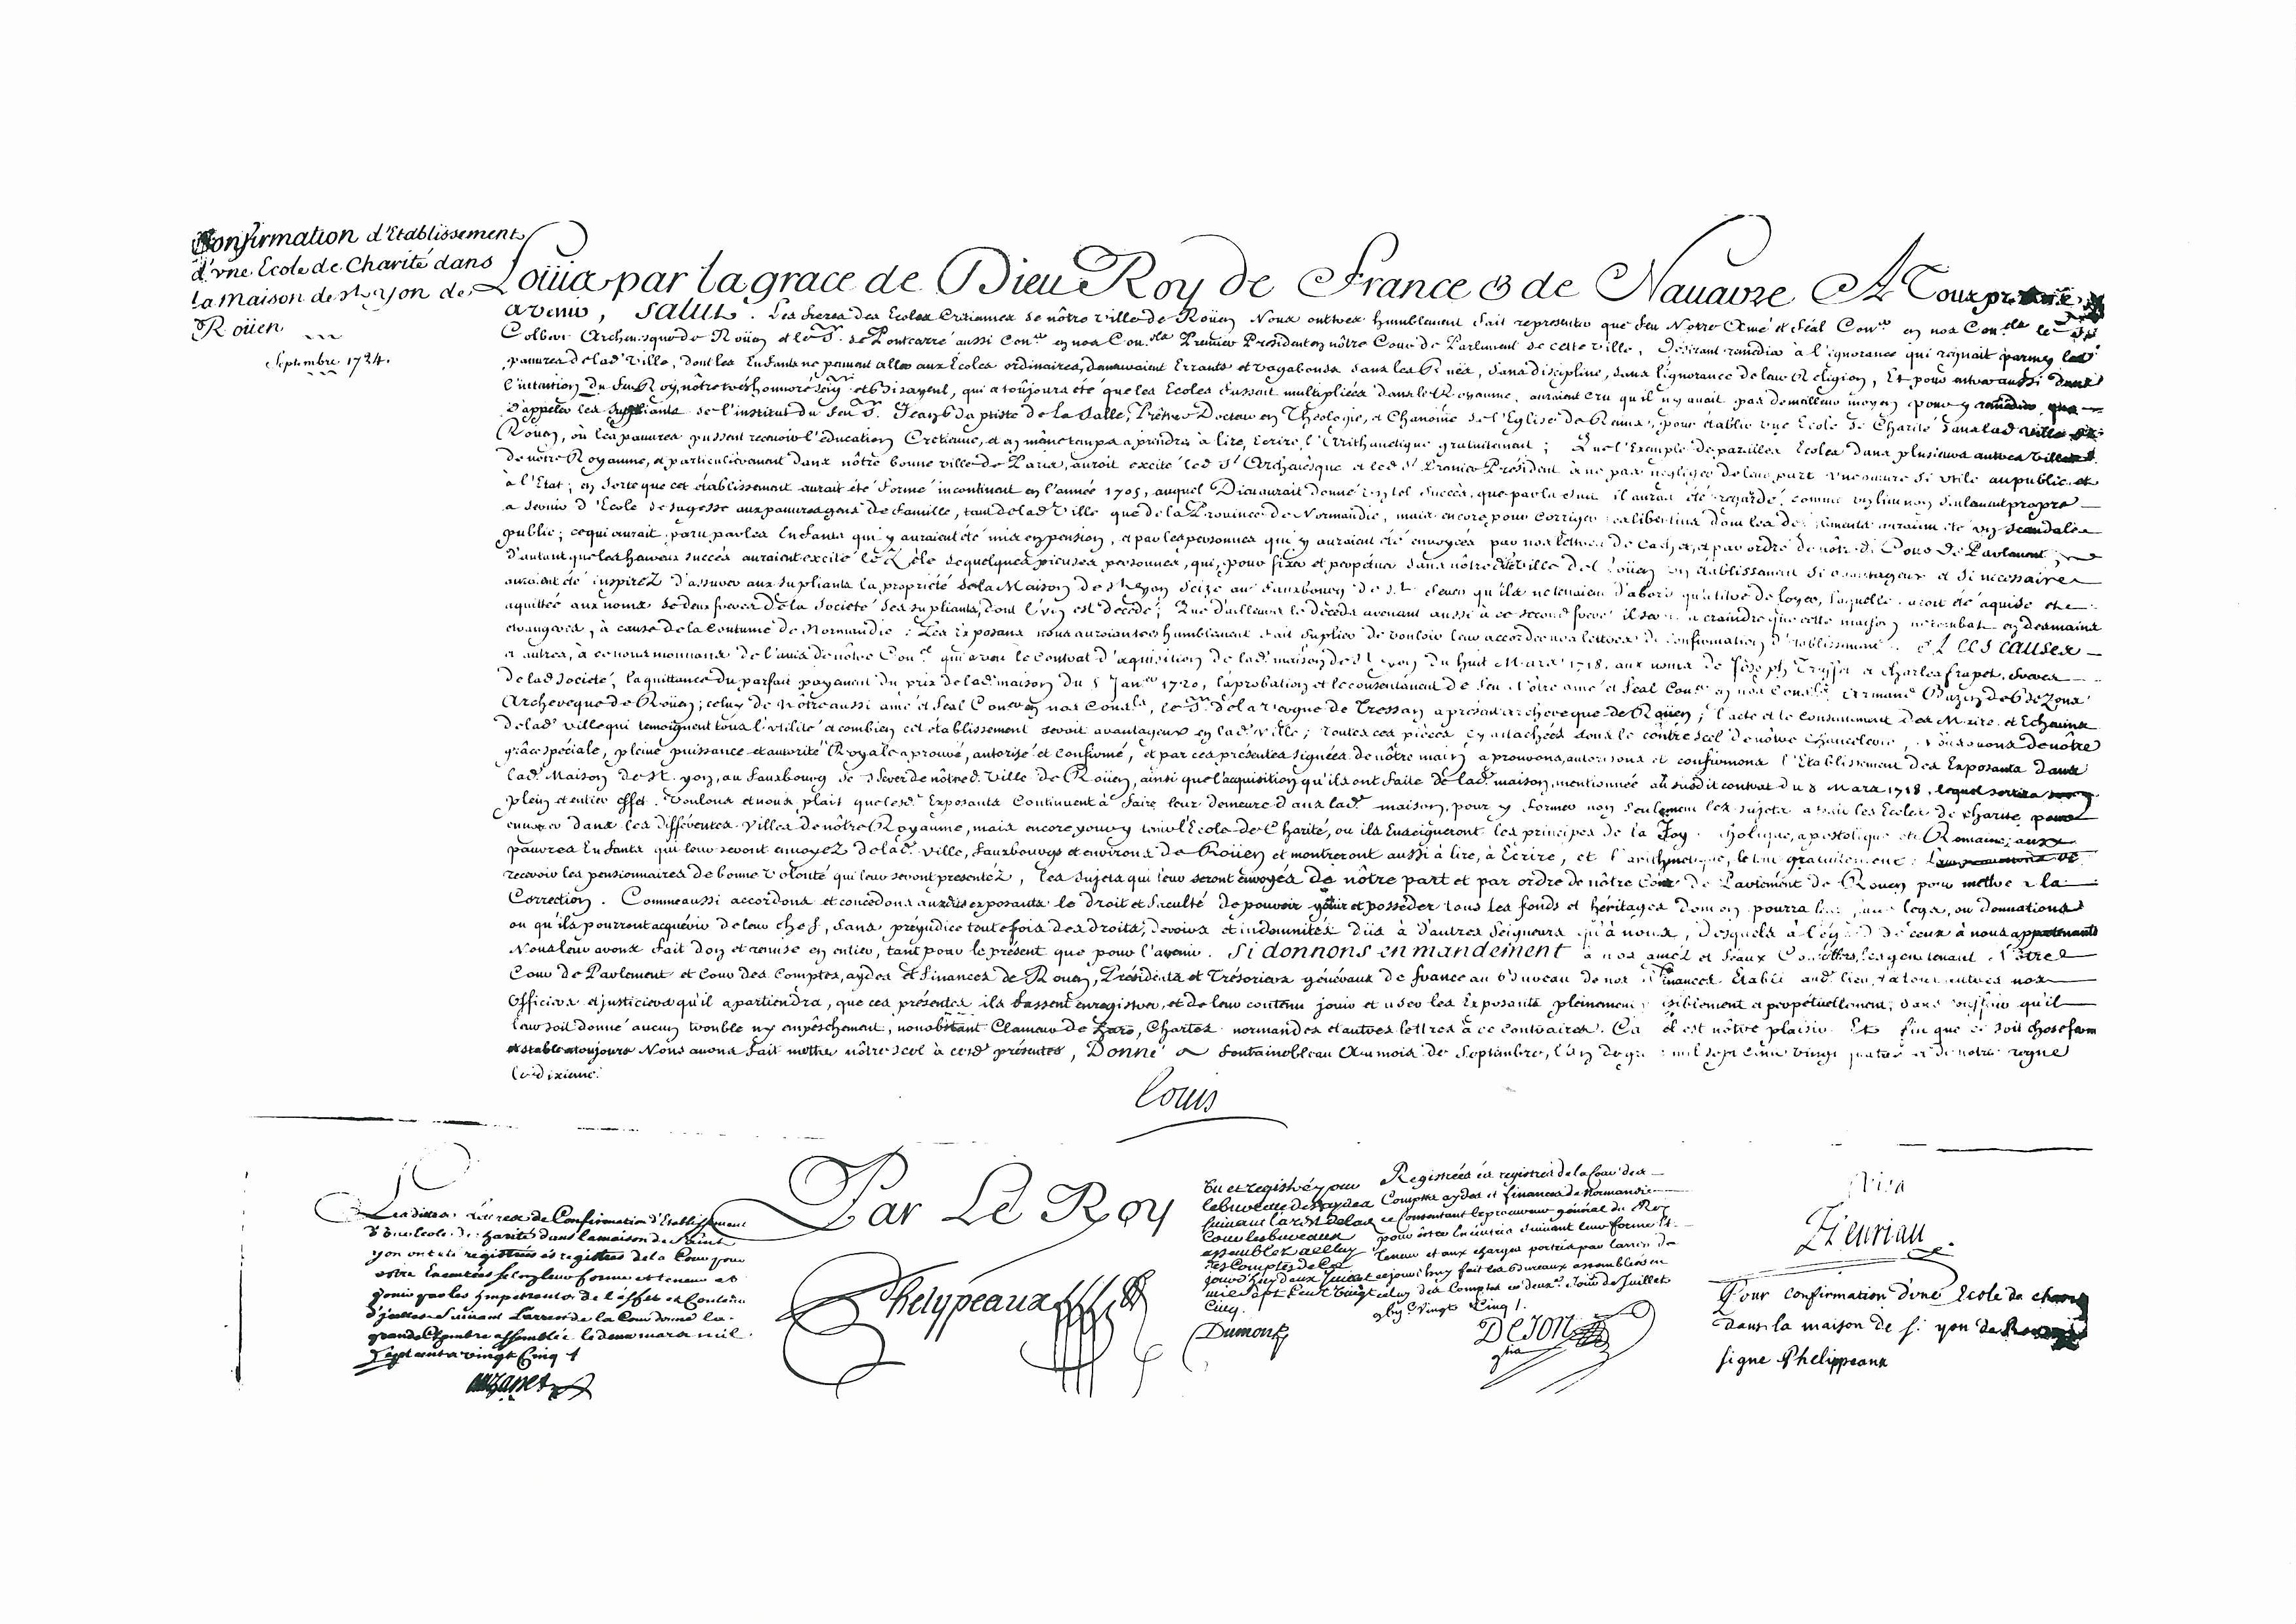 Confirmation d'Etablissement
d'vne Ecole de Charité dans
la Maison de St. yon de
Roüen
Septembre 1724.
Loüis par la grace de Dieu Roy de France & de Nauarre A Tous
avenir, Salut. Les freres des Ecoles Cretiennes de nôtre ville de Roüen Nous ont tres humblement fait representer que feu Notre Amé et féal Con.er en nos Con.ls le
Colbert Archevesque de Roüen et le S.r de Pontcarré aussi Con.er en nos Con.ls Premier President en nôtre Cour de Parlement de cette ville, Desirant remedier à l'ignorance qui regnait parmy les
pauvres de lad. Ville, dont les Enfants ne peuvent aller aux Ecoles ordinaires, demeuraient Errants et vagabonds dans les Ruës, sans discipline, dans l'ignorance de leur Religion, Et pour entrer aussi dans
l'intention du feu Roy, nôtre très honnoré seig.r et Bisayeul, qui a toûjours été que les Ecoles fussent multipliées dans le Royaume, auraient cru qu'il n'y auait pas de meilleur moyen pour y remedier que
d'appeler les supliants de l'institut du feu S.r Jean Baptiste de la Salle, Prêtre Docteur en Théologie, et Chanoine de l'Eglise de Reims, pour établir une Ecole de Charité dans lad. ville de
Roüen, où les pauvres pussent recevoir l'éducation Cretienne, et en même temps aprendre à lire, Ecrire, l'Arithmetique gratuitement; Que l'Exemple de pareilles Ecoles dans plusieurs autres villes
de nôtre Royaume, et particulierement dans nôtre bonne ville de Paris, auroit excité led. S.r Archevesque et led. S.r Premier Président à ne pas négliger de leur part une œuvre si vtile au public et
à l'Etat; en sorte que cet établissement aurait été formé incontinent en l'année 1705, auquel Dieu aurait donné un tel succès, que par la suite il aurait été regardé comme un lieu non seulement propre
a servir d'Ecole de sagesse aux pauvres gens de famille, tant de lad. Ville que de la Province de Normandie, mais encore pour corriger les libertins dont les auraient été un scandale
public; ce qui aurait paru par les Enfants qui y auraient été mis en pension, et par les personnes qui y auraient été envoyées par nos lettres de Cachet, et par ordre de nôtred. Cour de Parlement,
d'autant que les heureux succès auraient excité le Zèle de quelques pieuses personnes, qui, pour fixer et perpetuer dans nôtre dite ville de Roüen un établissement si avantageux et si necessaire
auraient été inspirez d'assurer aux supliants la propriété de la Maison de St. Yon Scize au Fauxbourg de St. Sever qu'ils ne tenaient d'abord qu'à titre de loyer, laquelle auroit été aquise et
aquittée aux noms de deux freres de la Societé des supliants, dont l'un est decedé; Que d'ailleurs le décès avenant aussi à ce second frere il seroit a craindre que cette maison ne tombat en des mains
etrangeres, à cause de la Coutume de Normandie; Les Exposans nous auroient tres humblement fait suplier de vouloir leur accorder nos lettres de confirmation d'établissement. A ces causes
et autres, à ce nous mouvans de l'avis de nôtre Con.el qui a veu le contrat d'aquisition de lad. maison de St. yon du huit Mars 1718. aux noms de Joseph Truffet et Charles frapet, freres
de lad. Societé, la quittance du parfait payement du prix de lad. maison du 5 Jan.er 1720, l'aprobation et le consentement de feu Nôtre amé et féal Con.er en nos Con.ls Armand Bazin de Bezons
Archeveque de Roüen; celuy de Nôtre aussi amé et féal Con.er en nos Con.ls, le S.r de la Vergne de Tressan a présent archeveque de Roüen; l'acte et le consentement des Maire et Echevins
de lad. ville qui temoignent tous l'vtilité et combien cet établissement seroit avantageux en lad. ville; toutes ces pièces cy attachées sous le contre scel de nôtre Chancelerie, Nous avons de nôtre
grâce spéciale, pleine puissance et autorité Royale aprouvé, autorisé et confirmé, et par ces présentes signées de nôtre main aprouvons, autorisons et confirmons l'Etablissement des Exposants dans
lad. Maison de St. yon, au Fauxbourg de S. Sever de nôtred. Ville de Roüen, ainsi que l'acquisition qu'ils ont faite de lad. maison, mentionnée au susdit contrat du 8 Mars 1718, lequel sortira son
plein et entier effet. Voulons et nous plait que lesd. Exposants Continuent à faire leur demeure dans lad. maison, pour y former non seulement les sujets a tenir les Ecoles de charité, pour
envoyer dans les différentes Villes de nôtre Royaume, mais encore pour y tenir l'Ecole de Charité, ou ils Enseigneront les principes de la Foy Catholique, apostolique et Romaine, aux
pauvres Enfants qui leur seront envoyez de lad. Ville, Fauxbourgs et environs de Roüen et montreront aussi à lire, à Ecrire, et l'arithmetique, le tout gratuitement;
recevoir les pensionnaires de bonne volonté qui leur seront presentéz, les sujets qui leur seront envoyés de nôtre part et par ordre de nôtre Cour de Parlement de Rouen pour mettre a la
Correction. Comme aussi accordons et concedons auxdits exposants le droit et faculté de pouvoir joüir et posseder tous les fonds et héritages dont on pourra leur faire legs, ou donnations
ou qu'ils pourront acquérir de leur chef, sans préjudice toutefois des droits, devoirs et indemnités dûs à d'autres Seigneurs qu'à nous, desquels à l'égard de ceux à nous appartenants
Nous leur avons fait don et remise en entier, tant pour le présent que pour l'avenir. Si donnons en mandement à nos améz et féaux Conseillers, les gens tenant Nôtre
Cour de Parlement et Cour des Comptes, aydes et finances de Rouen, Présidents et Trésoriers généraux de france au Bureau de nos Finances Etabli aud. lieu, et à tous autres nos
Officiers et justiciers qu'il apartiendra, que ces présentes ils fassent enregistrer, et de leur contenu joüir et user les Exposants pleinement, paisiblement et perpétuellement, sans souffrir qu'il
leur soit donné aucun trouble ny empêchement, nonobstant Clameur de haro, Chartes normandes et autres lettres à ce contraires. Car tel est nôtre plaisir. Et afin que ce soit chose ferme
et stable a toujours Nous avons fait mettre nôtre scel à cesd. présentes, Donné à Fontainebleau Au mois de Septembre, l'an de grace mil sept cens vingt quatre et de notre regne
le dixieme.
Louis
Lesdites Lettres de Confirmation d'Etablissement
d'une Ecole de charité dans la maison de Saint
yon ont été registrées és registres de la Cour pour
estre Executées selon leur forme et teneur et
jouir par les Impetrants de l'effet et Contenu
d'jcelles Suivant l'arrest de la Cour donné la
grande Chambre assemblée le deux mars mil
Sept cents vingt Cinq
Par Le Roy
Phelypeaux
Vu et registré au
le bureau des aydes
suivant l'arrest de la
Cour les bureaux
assemblez
des Comptes
jourd'huy deux Juillet
mil sept Cent vingt
Cinq.
Dumont
Registrées és registres de la Cour des
Comptes aydes et finances de Normandie
ce Consentant le procureur général du Roy
pour estre Executées suivant leur forme et
teneur et aux charges portées par l'arrest de
ce jourd'huy fait les Bureaux assemblés en
celuy des Comptes ce deux.e Jour de Juillet
Vingt Cinq
Visa
Fleuriau
Pour confirmation d'une Ecole de charité
dans la maison de S. yon de Rouen
signé Phelippeaux